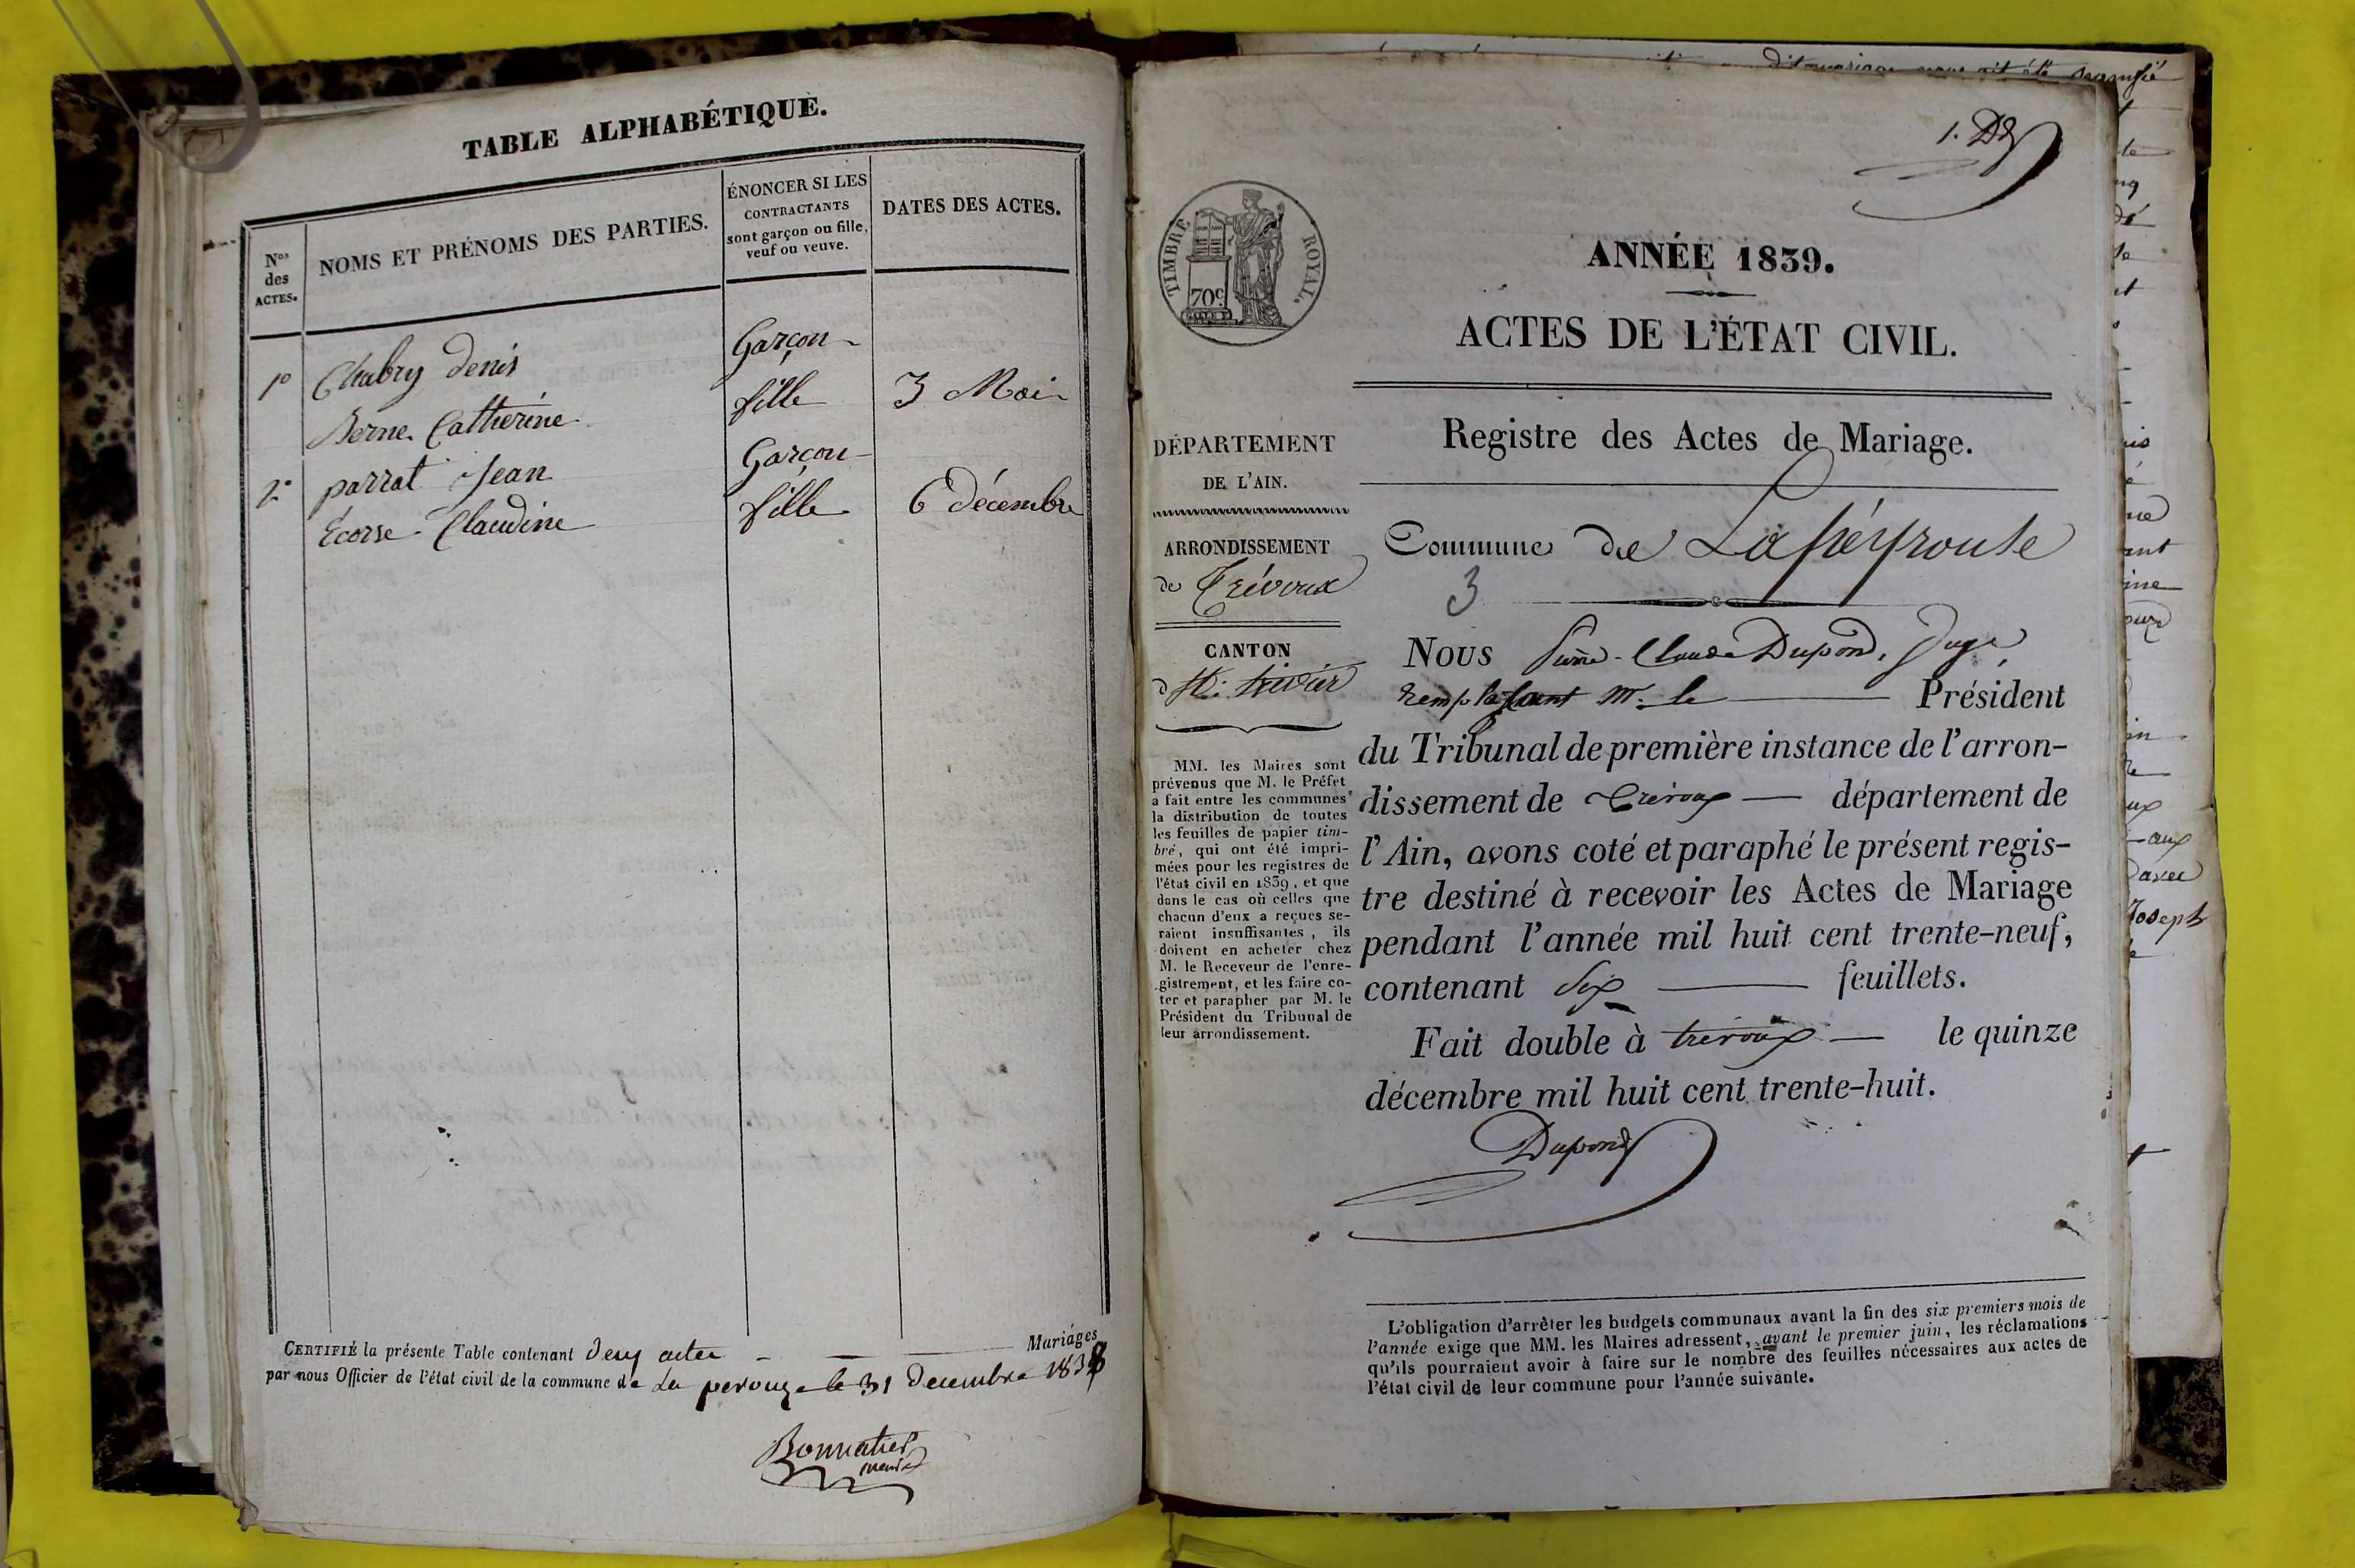 TABLE ALPHABÉTIQUE.
Nos
des
ACTES.
NOMS ET PRÉNOMS DES PARTIES.
ÉNONCER SI LES
CONTRACTANTS
sont garçon ou fille,
veuf ou veuve.
DATES DES ACTES.
1º Chabry denis Garçon
Berne Catherine fille 3 Mai
2º parrat Jean Garçon
Écorse Claudine fille 6 décembre
CERTIFIÉ la présente Table contenant deux actes Mariages
par nous Officier de l'état civil de la commune de La perouze le 31 decembre 1838
Bonnatier
maire
1. Dd
TIMBRE ROYAL.
70c
ANNÉE 1839.
ACTES DE L'ÉTAT CIVIL.
Registre des Actes de Mariage.
DÉPARTEMENT
DE L'AIN.
ARRONDISSEMENT
de Trévoux
CANTON
de St. trivier
MM. les Maires sont
prévenus que M. le Préfet
a fait entre les communes
la distribution de toutes
les feuilles de papier tim-
bré, qui ont été impri-
mées pour les registres de
l'état civil en 1839, et que
dans le cas où celles que
chacun d'eux a reçues se-
raient insuffisantes, ils
doivent en acheter chez
M. le Receveur de l'enre-
gistrement, et les faire co-
ter et parapher par M. le
Président du Tribunal de
leur arrondissement.
Commune de Lapéyrouse
3
Nous Pierre-Claude Dupond, Juge,
remplaçant Mr. le Président
du Tribunal de première instance de l'arron-
dissement de Trévoux département de
l'Ain, avons coté et paraphé le présent regis-
tre destiné à recevoir les Actes de Mariage
pendant l'année mil huit cent trente-neuf,
contenant six feuillets.
Fait double à trévoux le quinze
décembre mil huit cent trente-huit.
Dupond
L'obligation d'arrêter les budgets communaux avant la fin des six premiers mois de
l'année exige que MM. les Maires adressent, avant le premier juin, les réclamations
qu'ils pourraient avoir à faire sur le nombre des feuilles nécessaires aux actes de
l'état civil de leur commune pour l'année suivante.